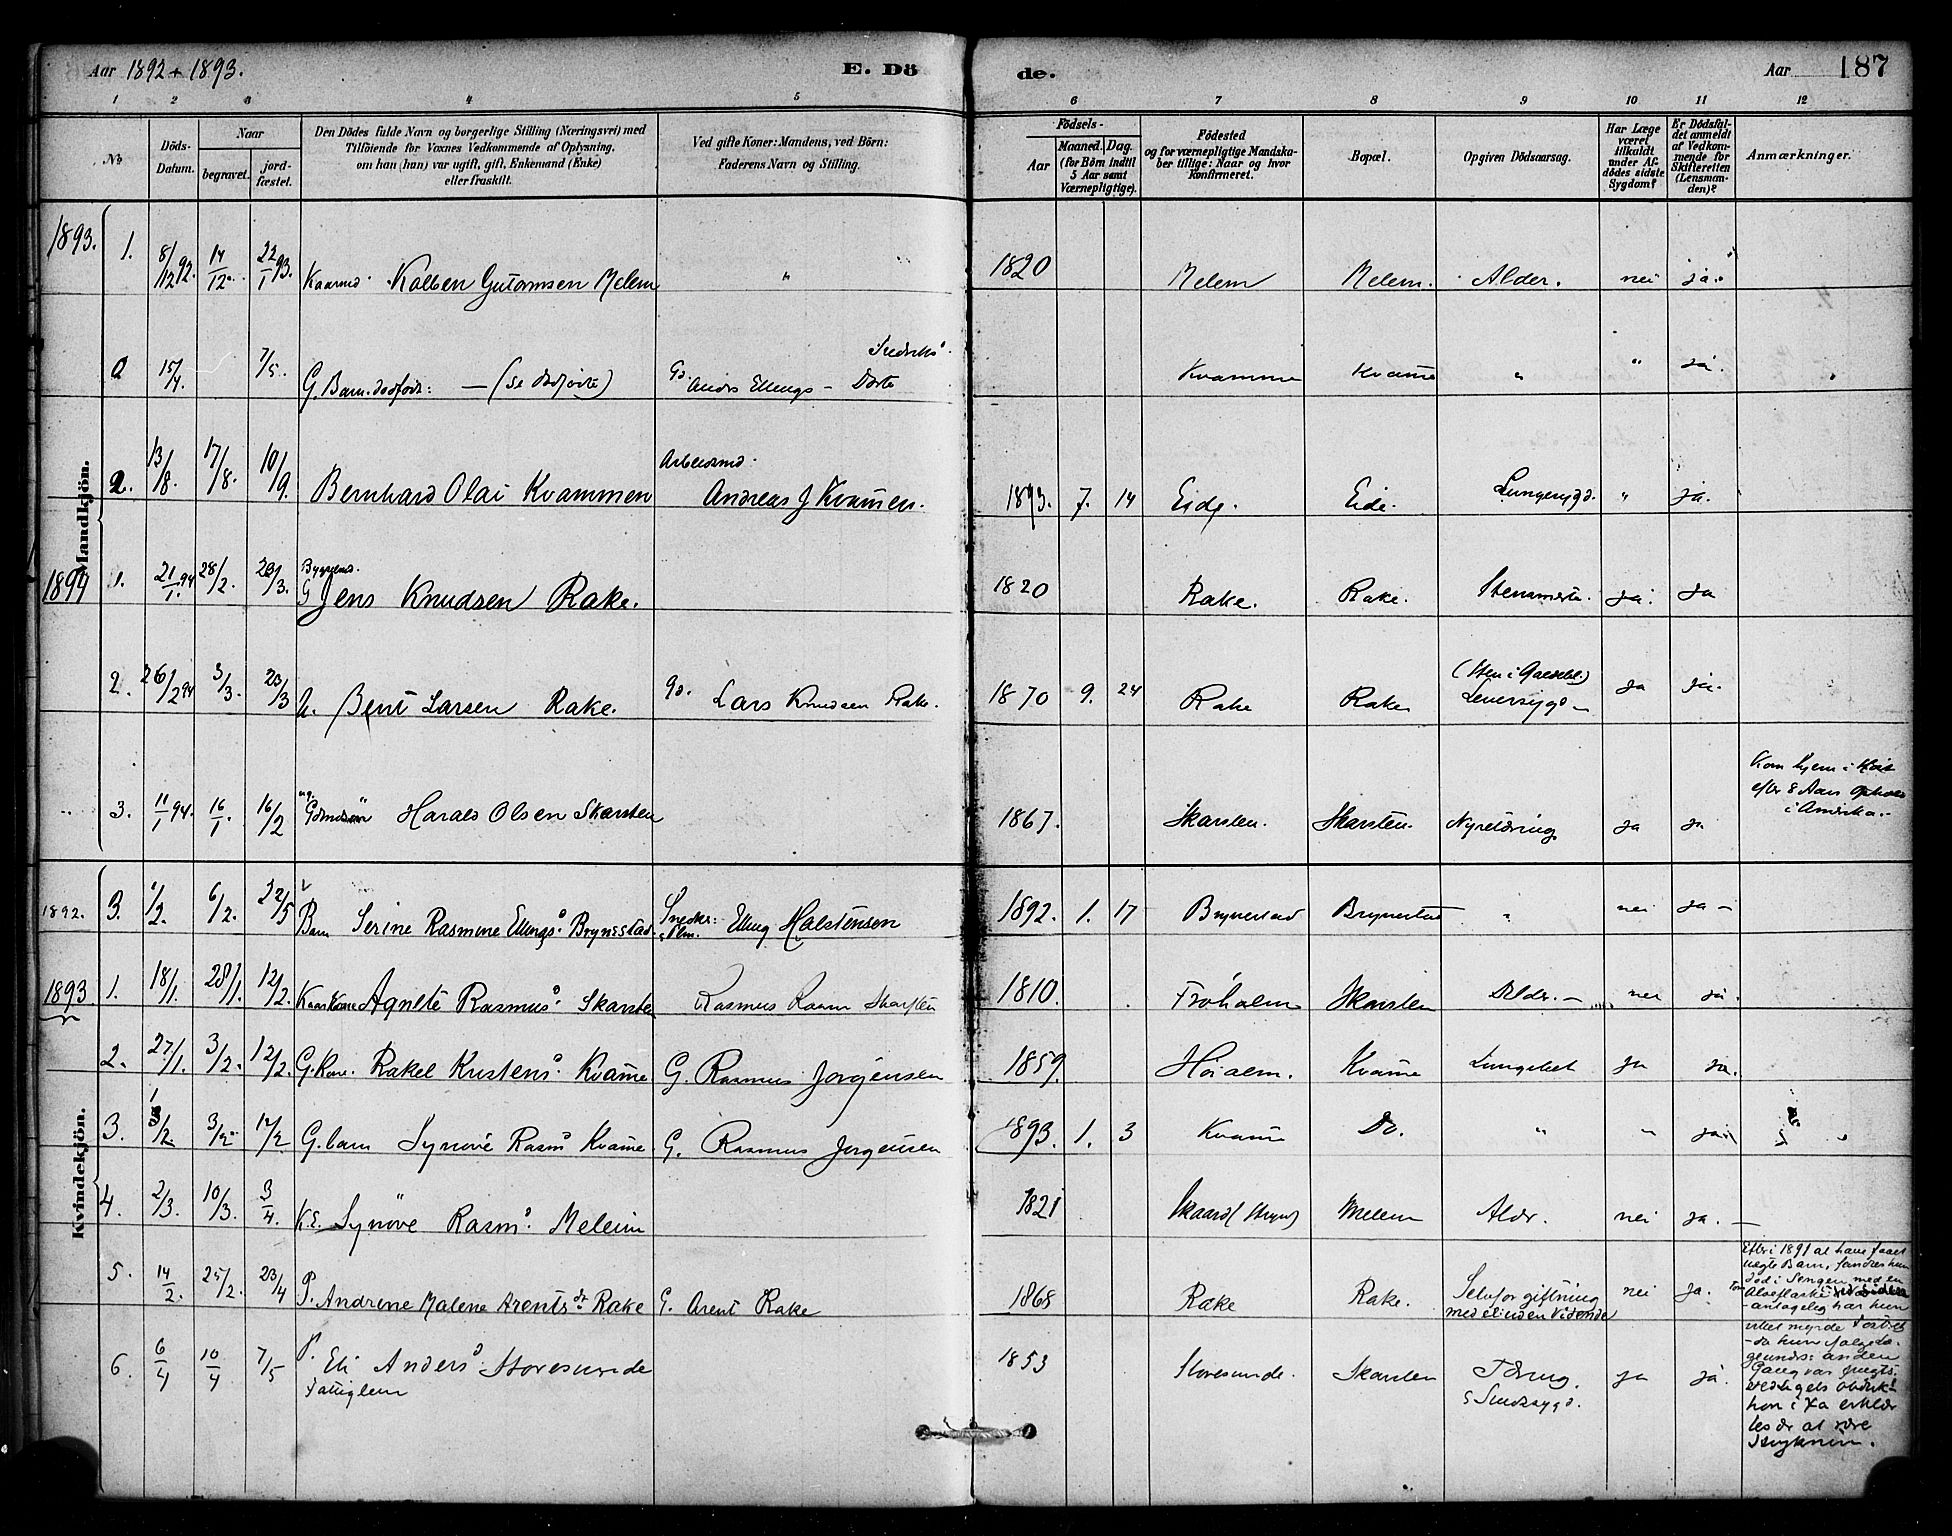 Aar 1892 + 1893.
E. Dö
de.
Aar 187
1 2 3 4 5 6 7 8 9 10 11 12
No
Döds-Datum.
Naar
begravet.
jord-fæstet.
Den Dödes fulde Navn og borgerlige Stilling (Næringsvei) med
Tilföiende for Voxnes Vedkommende af Oplysning,
om han (hun) var ugift, gift, Enkemand (Enke)
eller fraskilt.
Ved gifte Koner: Mandens, ved Börn:
Faderens Navn og Stilling.
Födsels-
Aar
Maaned. Dag.
(for Börn indtil
5 Aar samt
Værnepligtige).
Födested
og for værnepligtige Mandska-
ber tillige: Naar og hvor
Konfirmeret.
Bopæl.
Opgiven Dödsaarsag.
Har Læge
været
tilkaldt
under Af-
dödes sidste
Sygdom?
Er Dödsfal-
det anmeldt
af Vedkom-
mende for
Skifteretten
(Lensman-
den)?
Anmærkninger.
Mandkjön.
1893. 1. 8/12 92. 14/12 22/1 93. Kaarmd. Kolben Gutormsen Melem " 1820 Melem Melem. Alder. nei ja.
15/4. 7/5. G. Barn. dødfødt: — (se dødfødte) Gd. Anders Ellings - Dorte Kvamme Kvame " " ja.
2. 13/8. 17/8. 10/9. Bernhard Olai Kvammen Arbeidsmd. Andreas J Kvamen. 1893. 7. 14 Eide. Eide. Lungesygd. " ja.
1894 1. 21/1 94 28/2. 20/3. G Jens Knudsen Rake. 1820 Rake. Rake. ja. ja
2. 26/2 94 3/3. 20/3 Bent Larsen Rake. Gd. Lars Knudsen Rake. 1870 9. 24 Rake Rake (Sten i Galdebl.) Leversygd - ja ja.
3. 11/1 94. 16/1. 16/2 Harald Olsen Skarsten 1867. Skarsten. Skarsten. Nyretæring ja ja
Kom hjem i Høst
efter 8 Aars Ophold
i Amerika.-
Kvindekjön.
1892. 3. 1/2. 6/2. 22/5 Barn Serine Rasmine Ellings. Brynestad Snedker: Elling Halstensen 1892. 1. 17 Brynestad Brynestad " nei ja -
1893 1. 18/1. 28/1. 12/2. Kaarkone Agnete Rasmus. Skarsten Rasmus Rasm Skarsten 1810. Froholm Skarsten Aldr. - nei ja.
2. 27/1. 3/2. 12/2. G. Kone. Rakel Kristens. Kvame G. Rasmus Jorgensen 1859. Hoialm. Kvame Lungebet ja ja.
3. 1/2. 3/2 17/2 G. barn Synøve Rasm Kvame. G. Rasmus Jorgensen 1893. 1. 3 Kvame Do. " " ja
4. 2/3. 10/3. 3/4. K.E. Synøve Rasm. Meleim 1821 Skaard (Stryn) Melem Aldr. nei ja. —
5. 14/2. 25/2. 23/4 P. Andrine Malene Arentsdr Rake G. Arent Rake 1868 Rake Rake. Selvforgiftning nei ja.
Efter i 1891 at have faaet
uegte Barn, fandtes hun
død i Sengen med en
- antagelig har hun
6. 6/4 10/4 7/5 P. Eli Anders. Storesunde 1853 Storesunde. Skarsten Tæring. ja ja.
Fattiglem
& Sindssygd.